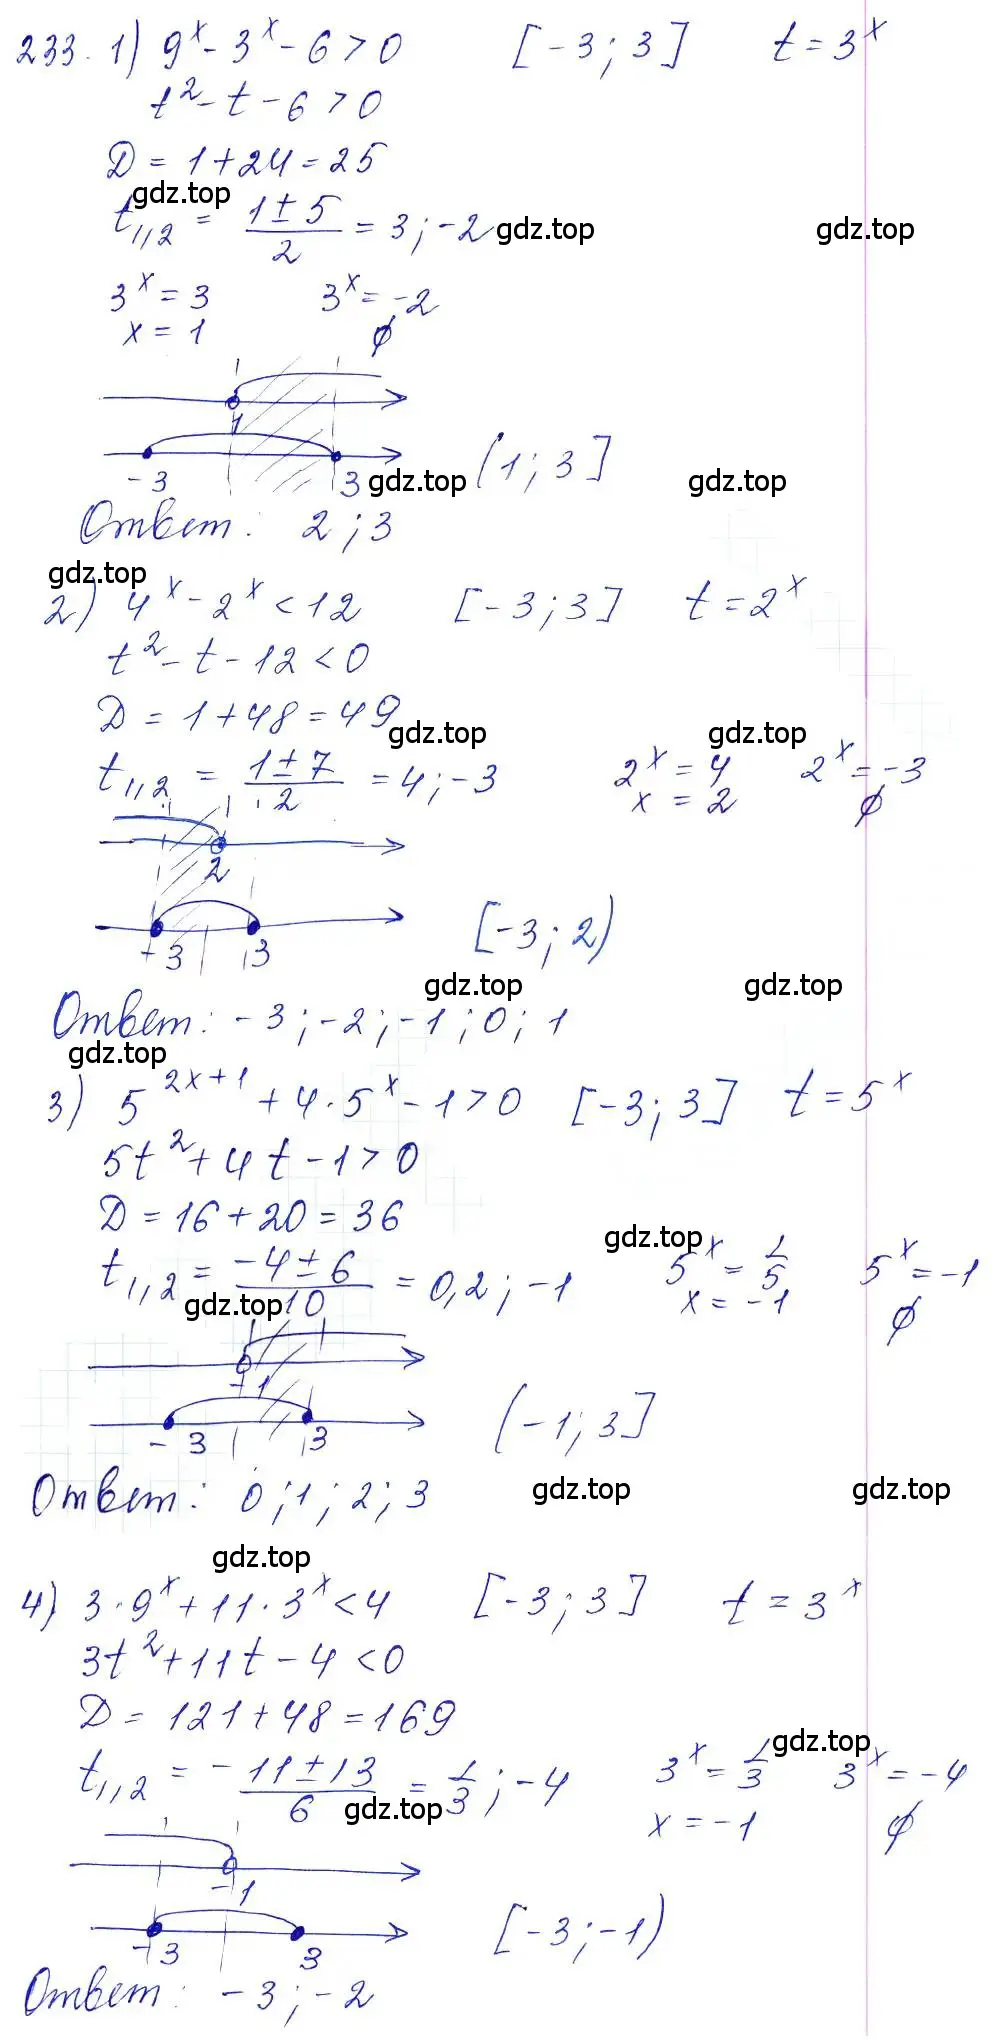 233. 1) 9^x - 3^x - 6 > 0 [-3; 3] t = 3^x
t² - t - 6 > 0
D = 1 + 24 = 25
gdz.top
t₁,₂ = (1 ± 5)/2 = 3; -2 gdz.top gdz.top
3^x = 3 3^x = -2
x = 1 ∅
1
-3 3 gdz.top (1; 3] gdz.top
Ответ: 2; 3
gdz.top
2) 4^x - 2^x < 12 [-3; 3] t = 2^x
t² - t - 12 < 0
D = 1 + 48 = 49
gdz.top gdz.top
t₁,₂ = (1 ± 7)/2 = 4; -3 2^x = 4 2^x = -3
x = 2 ∅
2
-3 3 [-3; 2)
gdz.top gdz.top
Ответ: -3; -2; -1; 0; 1
gdz.top
3) 5^(2x+1) + 4·5^x - 1 > 0 [-3; 3] t = 5^x
5t² + 4t - 1 > 0
D = 16 + 20 = 36
gdz.top
t₁,₂ = (-4 ± 6)/10 = 0,2; -1 5^x = 1/5 5^x = -1
gdz.top x = -1 ∅
-1
-3 3 (-1; 3]
Ответ: 0; 1; 2; 3 gdz.top gdz.top
gdz.top
4) 3·9^x + 11·3^x < 4 [-3; 3] t = 3^x
3t² + 11t - 4 < 0
D = 121 + 48 = 169
gdz.top
t₁,₂ = (-11 ± 13)/6 = 1/3; -4 3^x = 1/3 3^x = -4
gdz.top x = -1 ∅
-1
-3 3 [-3; -1)
Ответ: -3; -2